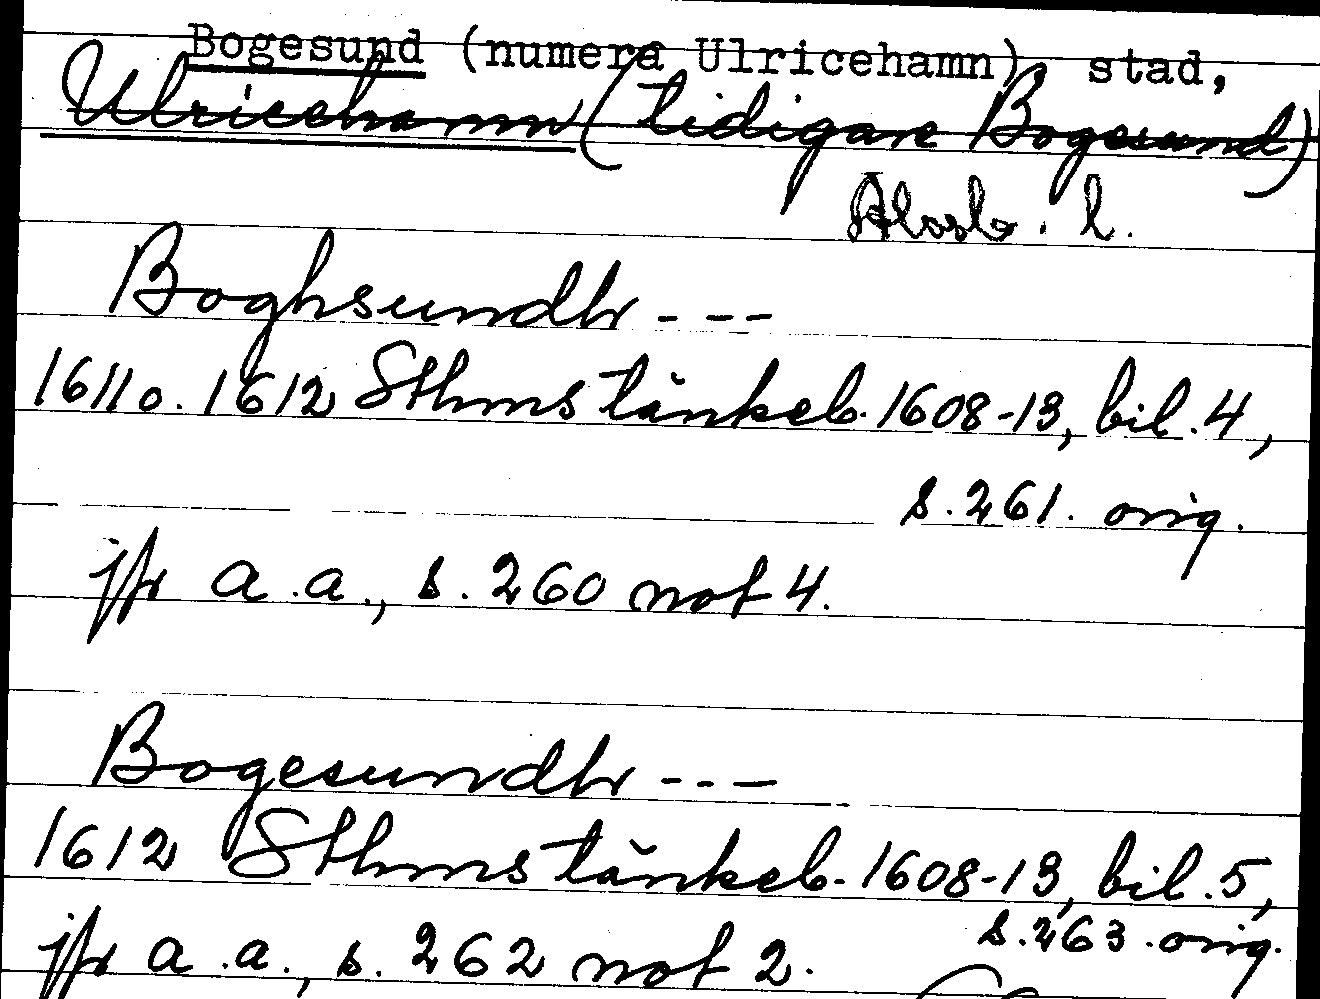 Bogesund (numera Ulricehamn) stad,
Ulricehamn (tidigare Bogesund)
Älvsb. l.
Boghsundh ---
1611 o. 1612 Sthms tänkeb. 1608-13, bil. 4,
s. 261. orig.
jfr a.a., s. 260 not 4.
Bogesundh ---
1612 Sthms tänkeb. 1608-13, bil. 5,
s. 263. orig.
jfr a.a., s. 262 not 2.